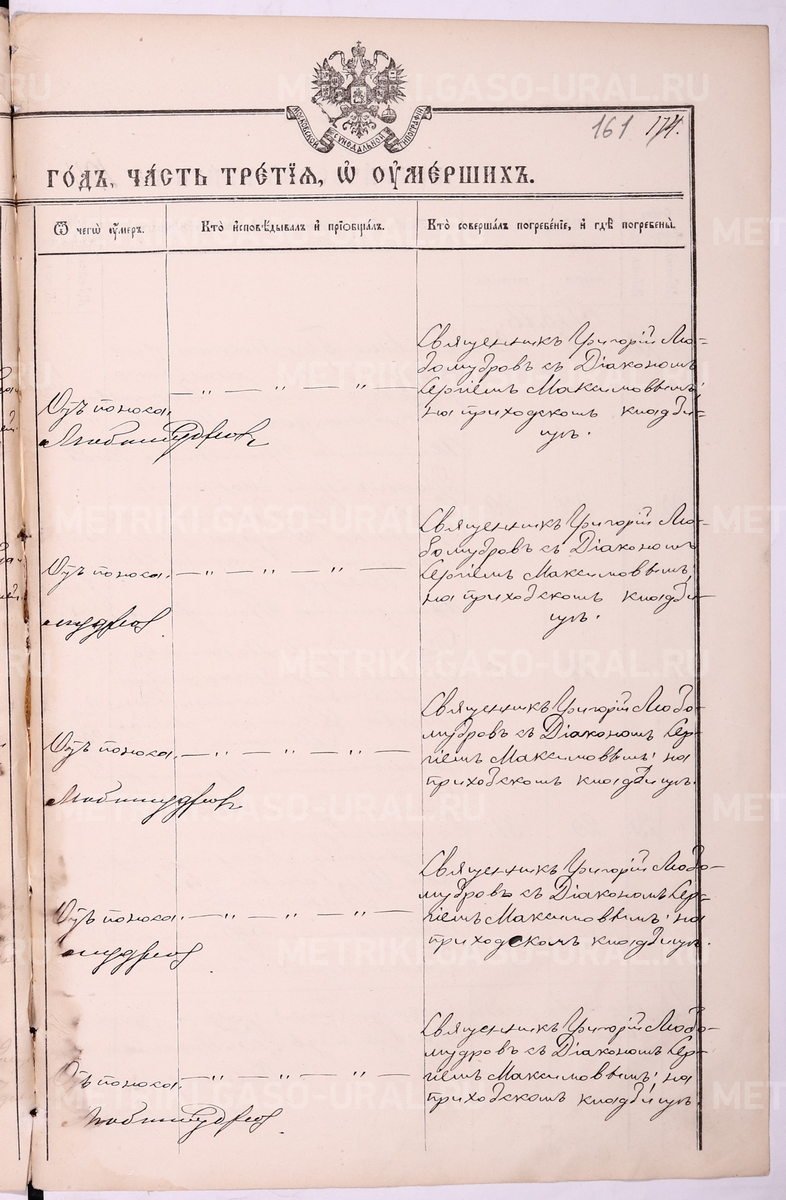 МОСКОВСКОЙ СѴНОДАЛЬНОЙ ТИПОГРАФІИ
161 174.
ГО́ДЪ, ЧА́СТЬ ТРЕ́ТІѦ, Ѡ҆ ОУ҆МЕ́РШИХЪ.
Ѿ чегѡ̀ оу҆́меръ.
Кто̀ и҆сповѣ́дывалъ и҆ прїѡбща́лъ.
Кто̀ соверша́лъ погребе́нїе, и҆ гдѣ̀ погребены̀.
Священникъ Григорій Лю-
бомудровъ съ Діакономъ
Сергіемъ Максимовымъ;
на приходскомъ кладби-
щѣ.
Отъ поноса. — „ — „ — „ —
Любомудров
Священникъ Григорій Лю-
бомудровъ съ Діакономъ
Сергіемъ Максимовымъ;
на приходскомъ кладби-
щѣ.
Отъ поноса. — „ — „ — „ —
Священникъ Григорій Любо-
мудровъ съ Діакономъ Сер-
гіемъ Максимовымъ; на
приходскомъ кладбищѣ.
Отъ поноса. — „ — „ — „ —
Любомудров
Священникъ Григорій Любо-
мудровъ съ Діакономъ Сер-
гіемъ Максимовымъ; на
приходскомъ кладбищѣ.
Отъ поноса. — „ — „ — „ —
Священникъ Григорій Любо-
мудровъ съ Діакономъ Сер-
гіемъ Максимовымъ; на
приходскомъ кладбищѣ.
Отъ поноса. — „ — „ — „ —
Любомудров
METRIKI.GASO-URAL.RU